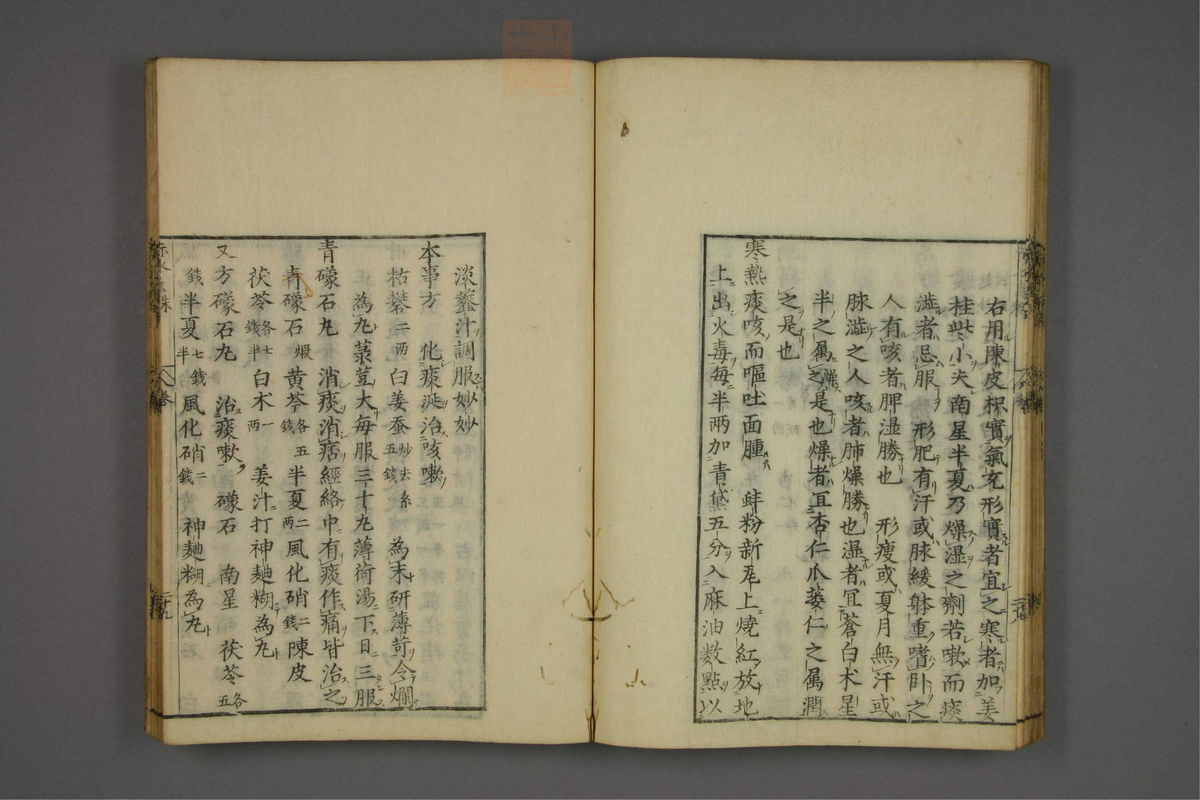 右用陳皮枳實氣充形實者宜之寒者加姜
桂些小夫南星半夏乃燥湿之劑若嗽而痰
澁者忌服 形肥有汗或脉緩躰重嗜卧之
人有咳者脾湿勝也 形瘦或夏月無汗或
脉澁之人咳者肺燥勝也湿者宜蒼白朮星
半之属燥之是也燥者宜杏仁瓜蔞仁之属潤
之是也
寒熱痰咳而嘔吐面腫 蚌粉新瓦上燒紅放地
上出火毒每半两加青黛五分入麻油数點以
淡虀汁調服妙妙
本事方 化痰涎治咳嗽
枯礬二两 白姜蚕炒去絲五錢 為末研薄荷令爛
為丸菉荳大每服三十九薄荷湯下日三服
青礞石丸 消痰消痞經絡中有痰作痛皆治之
青礞石煅 黄芩各五錢 半夏二两 風化硝二錢 陳皮
茯苓各七錢半 白朮一两 姜汁打神麯糊為丸
又方礞石丸 治痰嗽 礞石 南星 茯苓各五
錢 半夏七錢半 風化硝二錢 神麯糊為丸